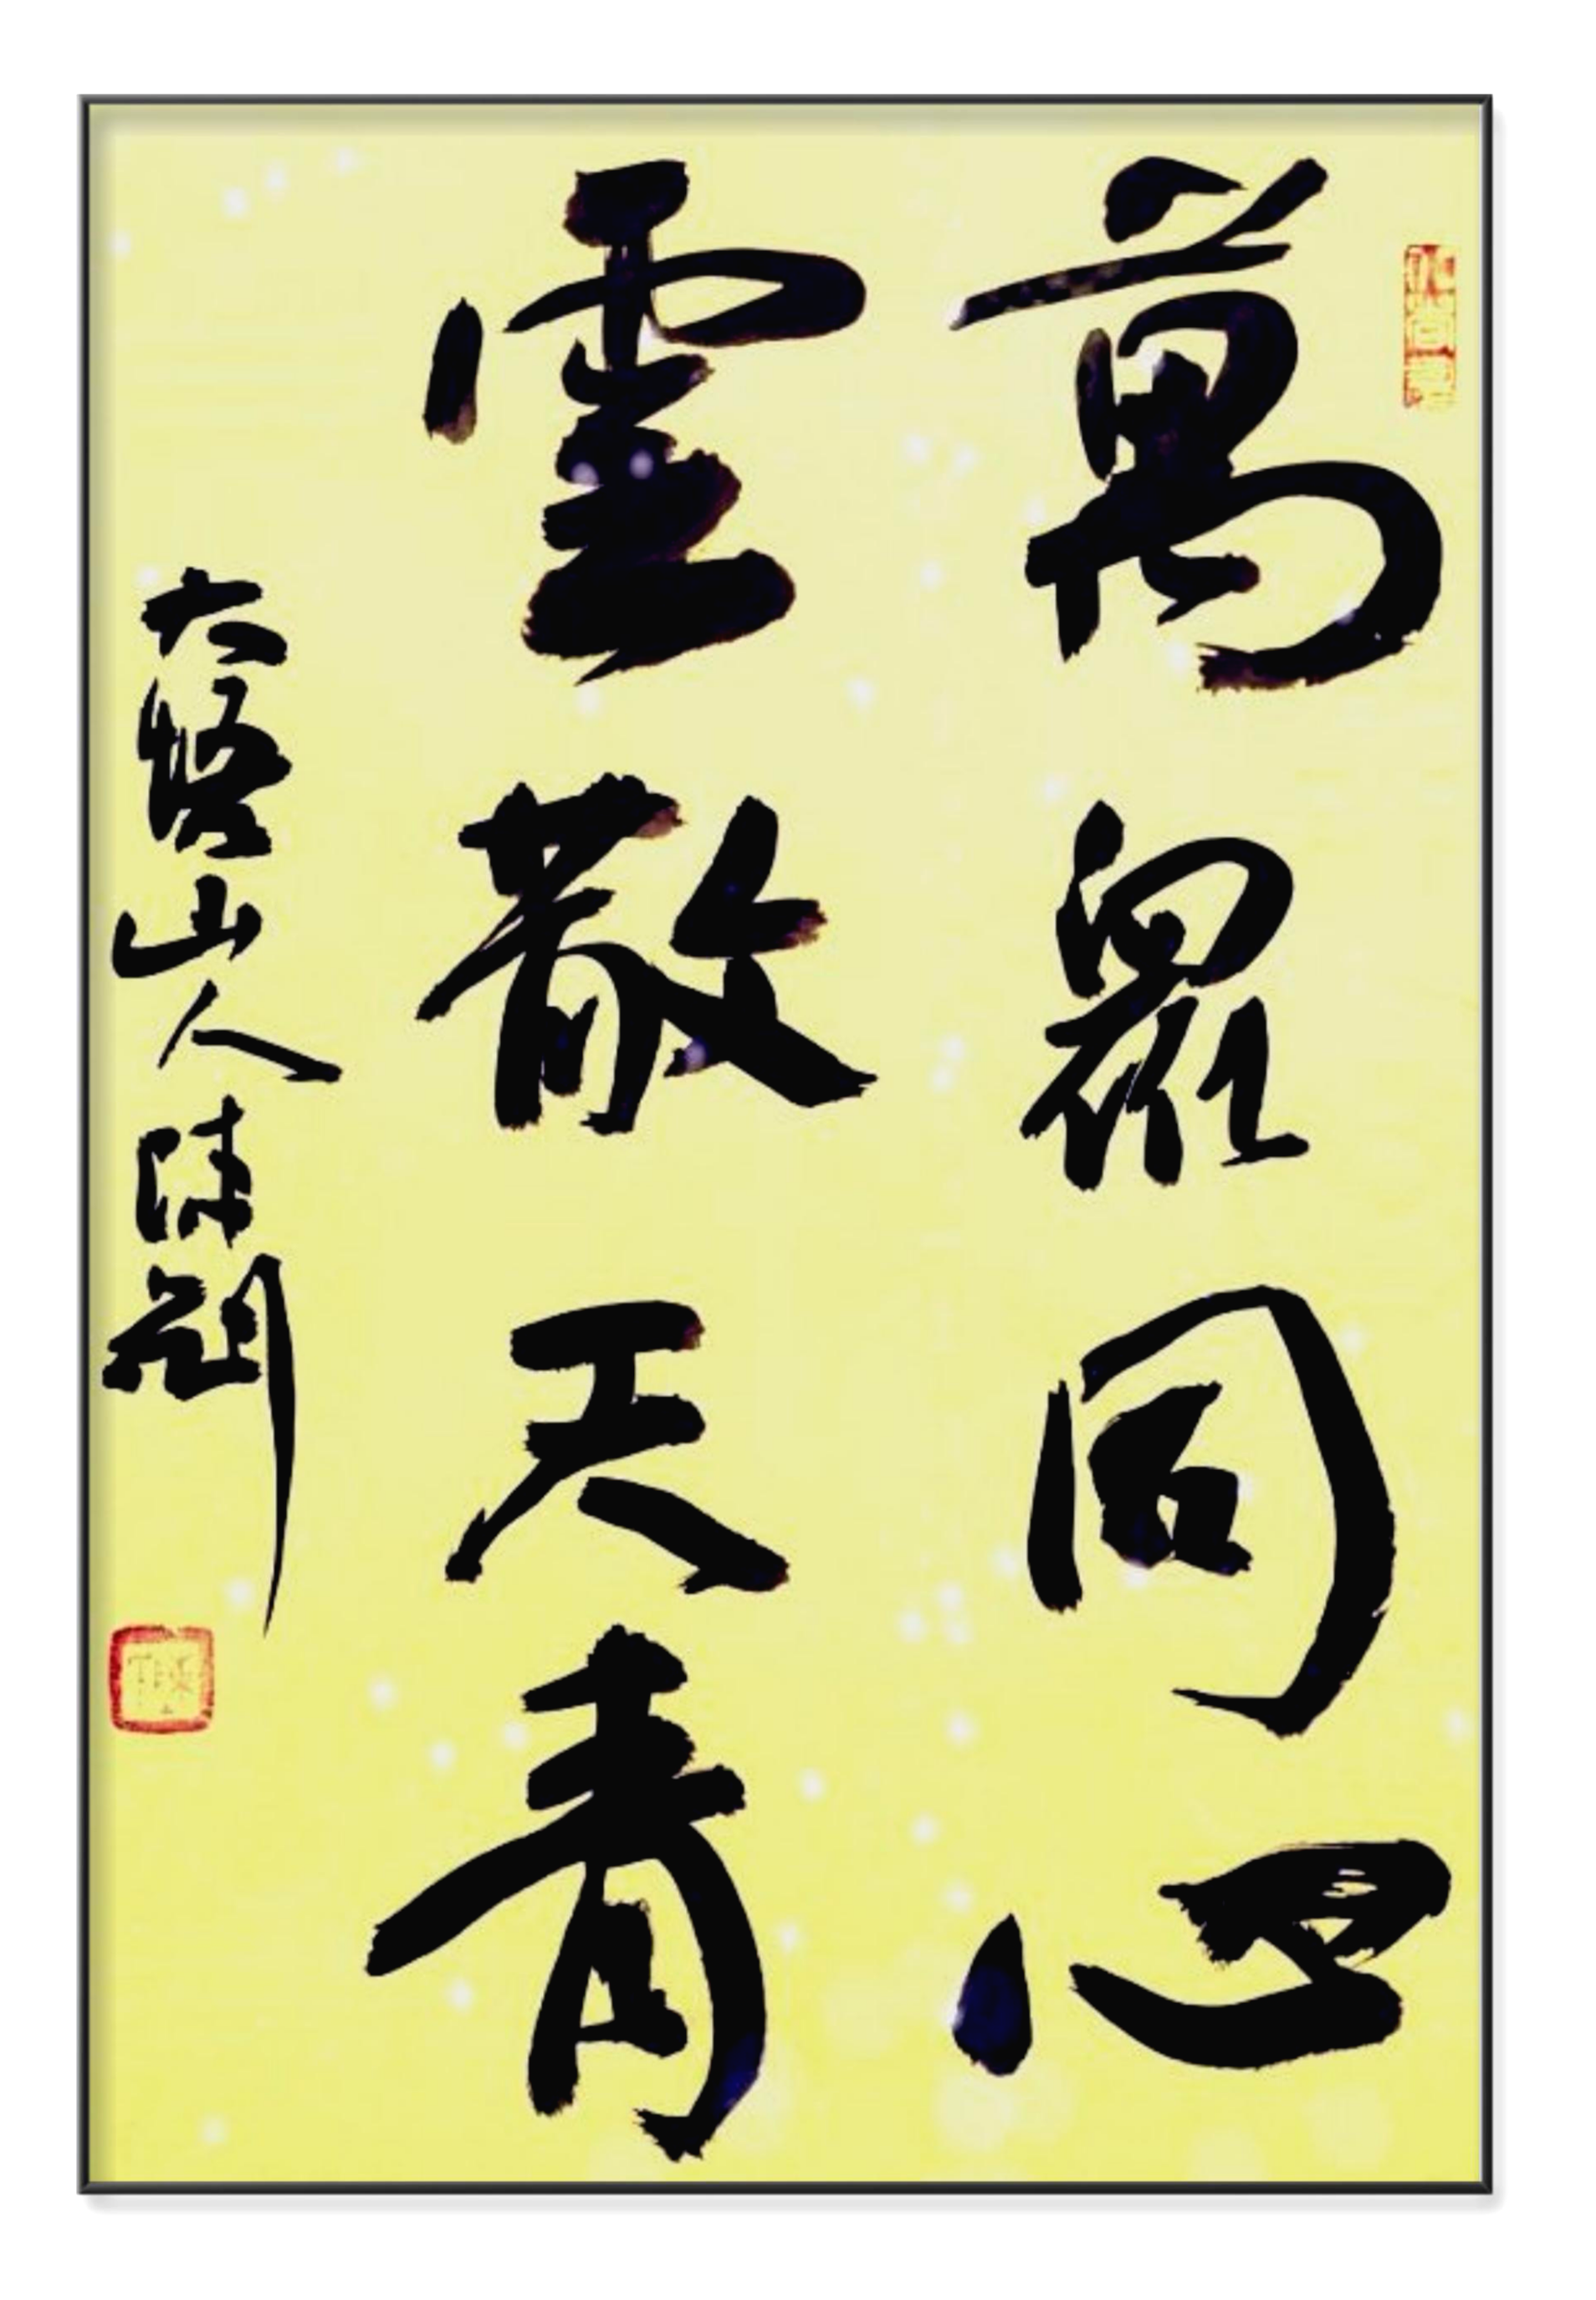 萬眾同心
雲散天青
大悟山人陳